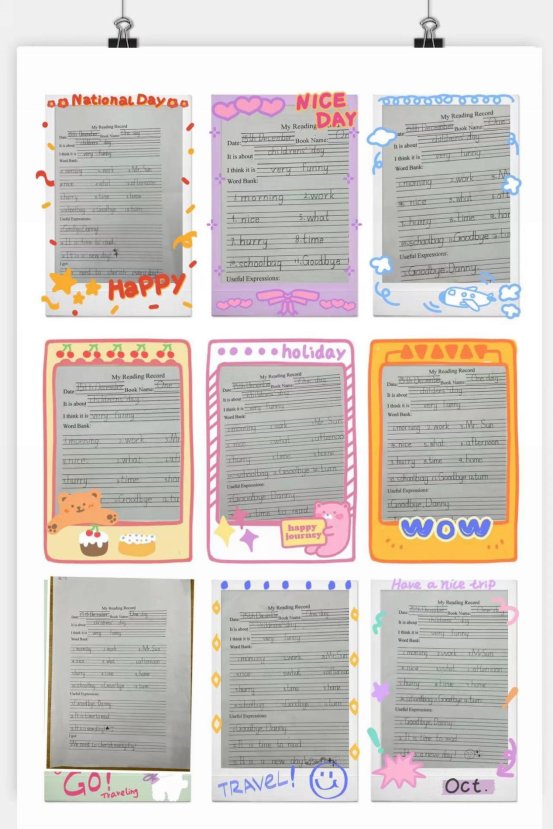 National Day
My Reading Record
Date: 13th December Book Name: One day
It is about childrens' day
I think it is very funny
Word Bank:
1.morning 2.work 3.Mr.Sun
4.nice 5.what 6.afternoon
7.hurry 8.time 9.home
10.schoolbag 11.Goodbye 12.turn
Useful Expressions:
1.Goodbye, Danny.
2.It is time to read.
3.It is a new day!
I got
need to cherish every day!
HaPPY
NICE
DAY
My Reading Record
Date: 13th December
It is about childrens' day
I think it is very funny
Word Bank:
1.morning 2.work
4.nice 5.what
7.hurry 8.time
10.schoolbag 11.Goodbye
Useful Expressions:
13th December Book Name: One
It is about childrens' day
I think it is very funny
Word Bank:
1.morning 2.work
nice 5.what
7.hurry 8.time
10.schoolbag 11.Goodbye 12.turn
Useful Expressions:
Goodbye, Danny.
My Reading Record
Date 13th December Book Name: One
It is about childrens' day
I think it is very funny
Word Bank:
1.morning 2.work
nice 5.what
hurry time
Goodbye
holiday
My Reading Record
December One day
It is about childrens' day
I think it is very funny
Word Bank:
morning 2.work 3.Mr.Sun
nice what afternoon
hurry time home
schoolbag Goodbye turn
Useful Expressions:
Goodbye, Danny.
time to read
happy
journey
My Reading Record
Date: 13th December Book Name: One day
It is about childrens' day
I think it is very funny
Word Bank:
1.morning 2.work 3.Mr.Sun
nice what afternoon
hurry time home
schoolbag Goodbye turn
Useful Expressions:
Goodbye, Danny.
WOW
My Reading Record
December One day
It is about childrens' day
I think it is very funny
Word Bank:
morning work Mr.Sun
nice what afternoon
hurry time home
schoolbag Goodbye turn
Useful Expressions:
Goodbye, Danny.
It is time to read.
It is a new day!
I got
We need to cherish every day!
GO!
Traveling
My Reading Record
December One day
It is about childrens' day
I think it is very funny
Word Bank:
morning work Mr.Sun
nice what afternoon
hurry time home
schoolbag Goodbye turn
Useful Expressions:
Goodbye, Danny.
It is time to read
It is a new day
TRAVEL!
Have a nice trip
My Reading Record
December One day
It is about childrens' day
I think it is very funny
Word Bank:
morning work Mr.Sun
nice what afternoon
hurry time home
schoolbag Goodbye turn
Useful Expressions:
Goodbye, Danny.
It is time to read.
is a new day!
Oct.